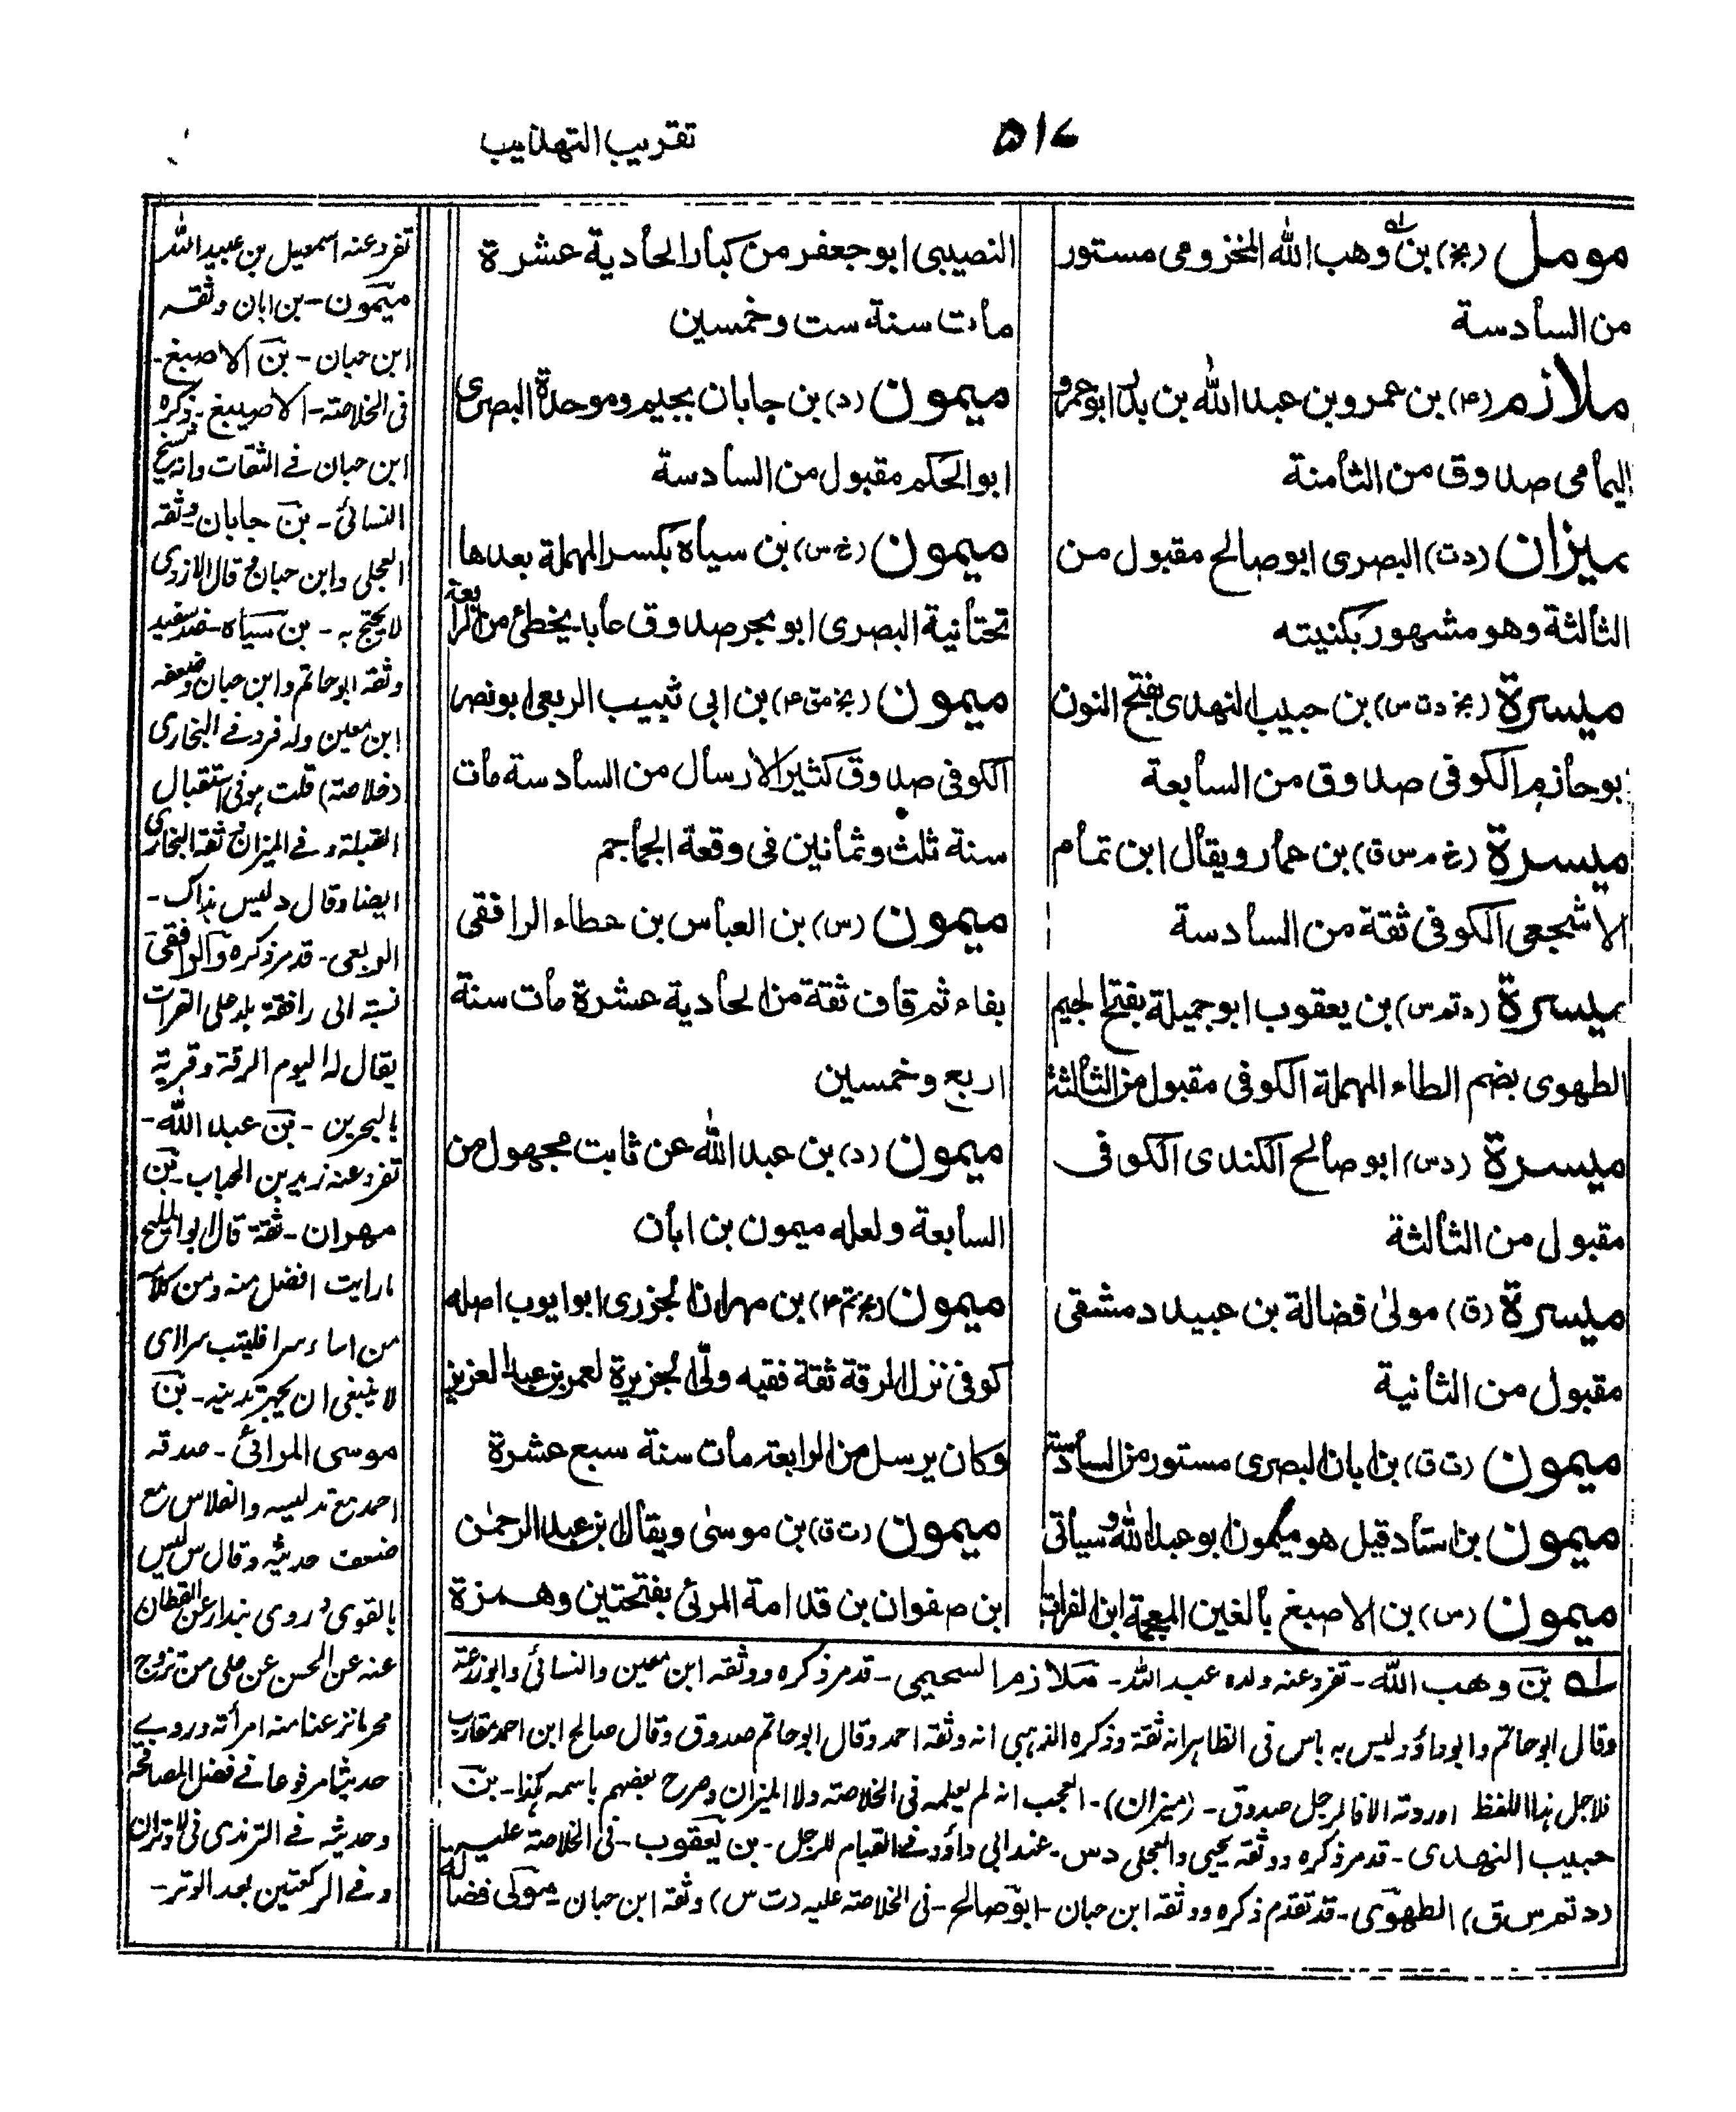 ٥١٧
تقريب التهذيب
مومل (بخ) بن وهب الله المخزومى مستور
من السادسة
ملازم (٤) بن عمرو بن عبد الله بن بدر ابو عمرو
اليمامى صدوق من الثامنة
ميزان (دت) البصرى ابو صالح مقبول من
الثالثة وهو مشهور بكنيته
ميسرة (بخ دت س) بن حبيب النهدى بفتح النون
بو حازم الكوفى صدوق من السابعة
ميسرة (خ م س ق) بن عمار ويقال ابن تمام
الاشجعى الكوفى ثقة من السادسة
ميسرة (د تم س) بن يعقوب ابو جميلة بفتح الجيم
الطهوى بضم الطاء المهملة الكوفى مقبول من الثالثة
ميسرة (دس) ابو صالح الكندى الكوفى
مقبول من الثالثة
ميسرة (ق) مولى فضالة بن عبيد دمشقى
مقبول من الثانية
ميمون (ت ق) بن ابان البصرى مستور من السادسة
ميمون بن استاد قيل هو ميمون ابو عبد الله وسياتى
ميمون (س) بن الاصبغ بالغين المعجمة ابن الفرات
النصيبى ابو جعفر من كبار الحادية عشرة
مات سنة ست وخمسين
ميمون (د) بن جابان بجيم وموحدة البصرى
ابو الحكم مقبول من السادسة
ميمون (خ س) بن سياه بكسر المهملة بعدها
تحتانية البصرى ابو بحر صدوق عابد يخطئ من الرابعة
ميمون (بخ مق ٤) بن ابى شبيب الربعى ابو نصر
الكوفى صدوق كثير الارسال من السادسة مات
سنة ثلث وثمانين فى وقعة الجماجم
ميمون (س) بن العباس بن عطاء الرافقى
بفاء ثم قاف ثقة من الحادية عشرة مات سنة
اربع وخمسين
ميمون (د) بن عبد الله عن ثابت مجهول من
السابعة ولعله ميمون بن ابان
ميمون (بخ م ٤) بن مهران الجزرى ابو ايوب اصله
كوفى نزل الرقة ثقة فقيه ولى الجزيرة لعمر بن عبد العزيز
وكان يرسل من الرابعة مات سنة سبع عشرة
ميمون (ت ق) بن موسى ويقال بن عبد الرحمن
ابن صفوان بن قدامة المرئى بفتحتين وهمزة
له بن وهب الله - تفرد عنه ولده عبد الله - ملازم السحيمى - قد مر ذكره ووثقه ابن معين والنسائى وابو زرعة
وقال ابو حاتم وابو داؤد ليس به باس فى الظاهر انه ثقة وذكره الذهبى انه وثقه احمد وقال ابو حاتم صدوق وقال صالح ابن احمد مقارب
فلاجل هذا اللفظ اوردته الا فالرجل صدوق - (ميزان) - العجب انه لم يعلمه فى الخلاصة ولا الميزان وصرح بعضهم باسمه كهذا - بن
حبيب النهدى - قد مر ذكره ووثقه يحيى والعجلى دس - عند ابى داؤد فى القيام للرجل - بن يعقوب - فى الخلاصة عليه
(د تم س ق) الطهوى - قد تقدم ذكره ووثقه ابن حبان - ابو صالح - فى الخلاصة عليه (دت س) وثقه ابن حبان - مولى فضالة
تفرد عنه اسمعيل بن عبيد الله
ميمون - بن ابان وثقه
ابن حبان - بن الاصبغ -
فى الخلاصة - الاصيبغ - ذكره
ابن حبان فى الثقات وانه شيخ
النسائى - بن جابان وثقه
العجلى وابن حبان قال الازدى
لا يحتج به - بن سياه - ضد سفيد
وثقه ابو حاتم وابن حبان وضعفه
ابن معين وله فرد فى البخارى
(خلاصة) قلت هو فى استقبال
القبلة وفى الميزان ثقة البخارى
ايضا وقال د ليس بذاك -
الربعى - قد مر ذكره والرافقى
نسبة الى رافقة بلد على الفرات
يقال لها اليوم الرقة وقرية
بالبحرين - بن عبد الله -
تفرد عنه زيد بن الحباب - بن
مهران - ثقة قال ابو المليح
ما رايت افضل منه ومن كلامه
من اساء سرا فليتب سرا الى
موسى المرائى - صدقه
احمد مع تدليسه والفلاس مع
ضعف حديثه وقال س ليس
بالقوى وروى بندار عن القطان
عنه عن الحسن عن على من تزوج
وحديثه فى الترمذى فى
وفى الركعتين بعد الوتر -